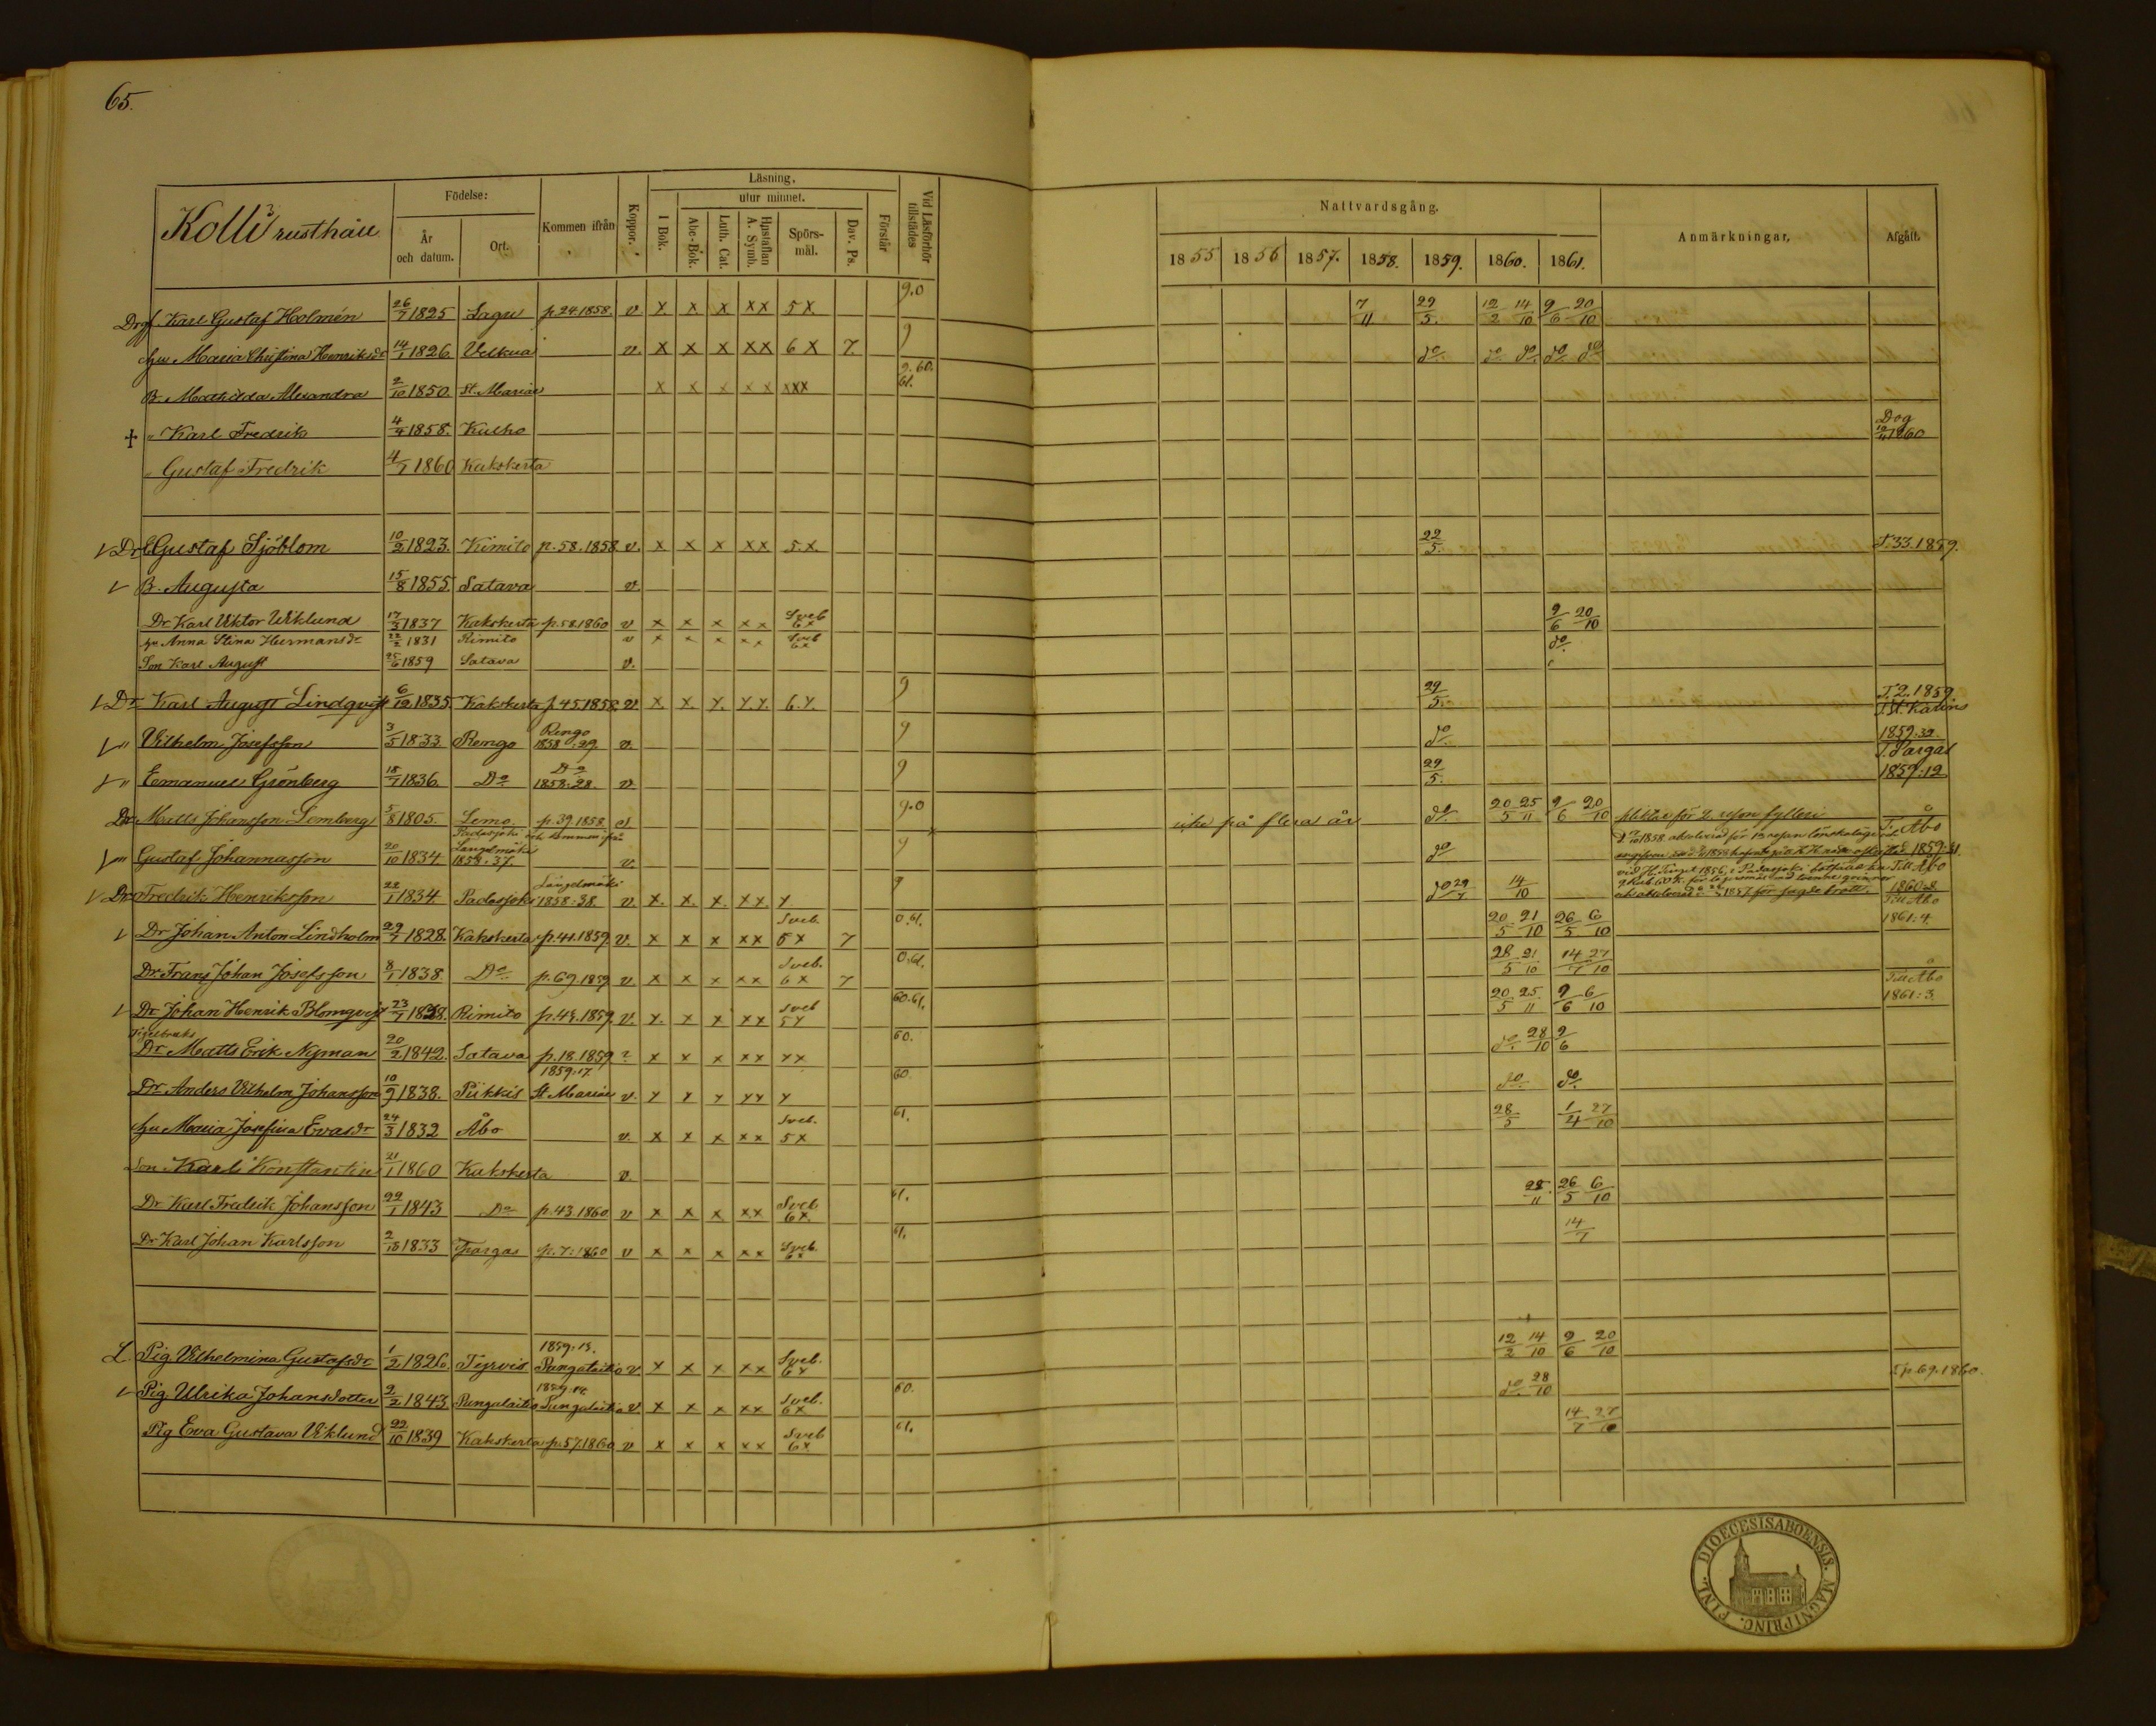 65.
Kolli 3 rusthåll
Födelse:
År och datum.
Ort.
Kommen ifrån
Koppor.
Läsning.
I Bok.
utur minnet.
Abc-Bok.
Luth. Cat.
Hustaflan A. Symb.
Spörs-mål.
Dav. Ps.
Förstår
Vid Läsförhör tillstädes
Nattvardsgång.
1855 1856 1857. 1858. 1859. 1860. 1861.
Anmärkningar.
Afgått.
Karl Gustaf Holmén 26/7 1825 Sagu p. 24. 1858. v. x x x xx 5 x 9.0 7/11 29/5. 12/2 14/10 9/6 20/10
hu Maria Christina Henriksdr 14/1 1826 Velkua v. x x x xx 6 x 7. 9 do. do do. do do
B. Mathilda Alexandra 2/10 1850. St. Mariae x x x x x xxx 9. 60. 61.
+ " Karl Fredrik 4/4 1858. Kulho Dog 1860
" Gustaf Fredrik 4/1 1860 Kakskerta
v Dr Gustaf Sjöblom 10/2 1823. Kimito p. 58. 1858. v. x x x xx 5. x. 22/5. T. 33. 1859.
v B. Augusta 15/8 1855. Satava v.
Dr Karl Viktor Wiklund 17/3 1837 Kakskerta p. 58. 1860 v x x x xx Sveb 6x 9/6 20/10
hu Anna Stina Hermansdr 22/2 1831 Rimito v x x x xx Sveb 6x do.
Son Karl August 25/6 1859 Satava v.
v Dr Karl August Lindqvist 6/12 1835. Kakskerta p. 45. 1858. v. x x. x. xx. 6. x. 9 29/5. T. 2. 1859.
v " Vilhelm Josefsson 3/5 1833 Remgo Remgo 1858: 29. v. 9 do. T. St. Karins 1859: 32.
v " Emanuel Grönberg 18/7 1836. Do Do 1858: 28. v. 9 29/5. T. Pargas 1859: 12
Dr Matts Johansson Lemberg 5/8 1805. Lemo. p. 39. 1858. 9.0 icke på flera år do 20/5 25/11 9/6 20/10 pliktar för 2. resan fylleri
v " Gustaf Johannasson 20/10 1834 Padasjoki och kommen ifrån Längelmäki 1858. 37. v. 9 do T. Åbo 1859: 31.
v Dr Fredrik Henriksson 22/1 1834 Padasjoki Längelmäki 1858: 38. v. x. x. x. xx x 9 do 29/7 14/10 Till Åbo 1860: 8.
v Dr Johan Anton Lindholm 29/7 1828. Kakskerta p. 41. 1859. v. x x x xx Sveb. 5 x 7 0. 61. 20/5 21/10 26/5 6/10 Till Åbo 1861: 4.
Dr Frans Johan Josefsson 8/1 1838. Do p. 69. 1859. v x x x xx Sveb. 6 x 7 0. 61. 28/5 21/10 14/7 27/10
v Dr Johan Henrik Blomqvist 23/7 1828. Rimito p. 45. 1859. v. x. x x xx Sveb 5 x 60. 61. 20/5 25/11 9/6 6/10 Till Åbo 1861: 3.
Tegelbruks
Dr Matts Erik Nyman 20/2 1842. Satava p. 18. 1859 ? x x x xx xx 60. do. 28/10 9/6
Dr Anders Vilhelm Johansson 10/9 1838. Piikkis 1859: 17. St. Mariae v x x x xx x 60. do do.
hu Maria Josefina Evasdr 24/3 1832 Åbo v. x x x xx Sveb. 5 x 61. 28/5 1/4 27/10
Son Karl Konstantin 21/1 1860 Kakskerta v.
Dr Karl Fredrik Johansson 22/1 1843 Do p. 43. 1860 v x x x xx Sveb 6x. 61. 25/11. 26/5 6/10
Dr Karl Johan Karlsson 2/10 1833 Pargas p. 7: 1860 v x x x xx Sveb. 6x 61. 14/7
L. Pig. Vilhelmina Gustafsdr 1/2 1826. Tyrvis 1859. 15. Pungalaitio v. x x x xx Sveb. 6x 12/2 14/10 9/6 20/10
v Pig. Ulrika Johansdotter 2/2 1843. Pungalaitio Pungalaitio v. x x x xx Sveb. 6x 60. do. 28/10 T. p. 69. 1860.
Pig Eva Gustava Viklund 22/10 1839 Kakskerta p. 57. 1860 v x x x xx Sveb 6x. 61. 14/7 27/10
DIOECESIS ABOENSIS. MAGNI PRINC. FINL.